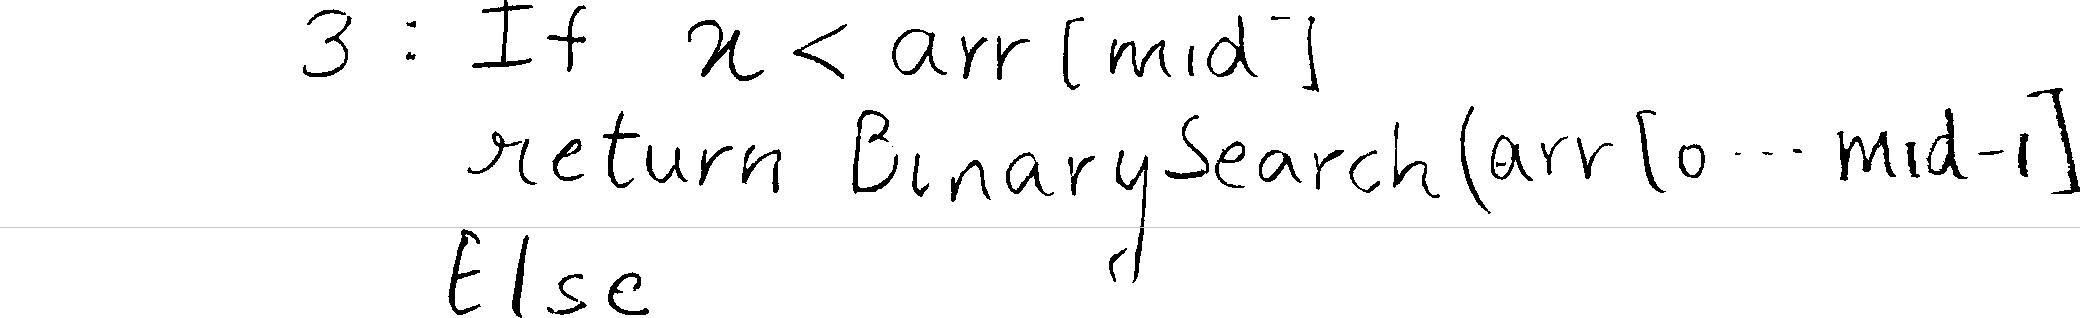 3 : If x < arr [mid]
return BinarySearch(arr [0 --- mid-1]
Else